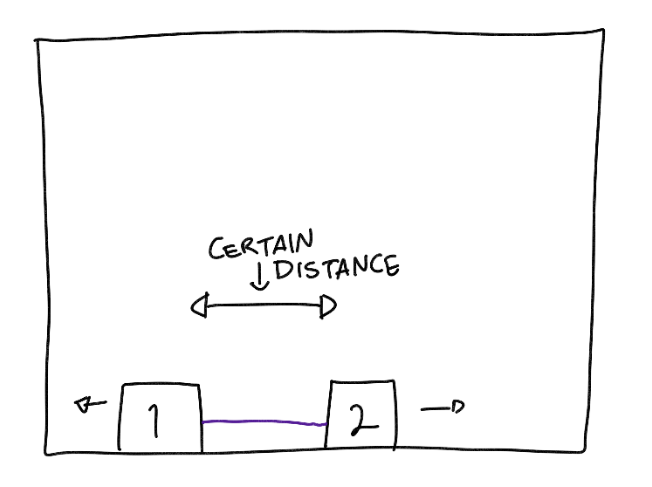 CERTAIN
DISTANCE
1
2